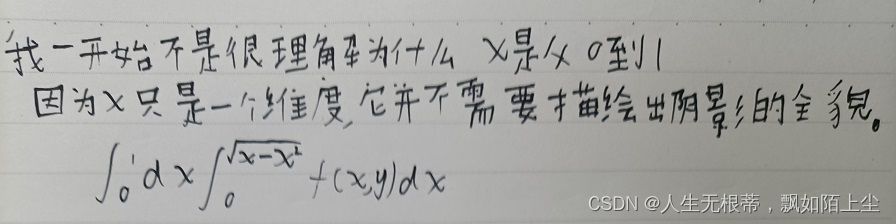 我一开始不是很理解为什么 x是从0到1
因为x只是一个维度,它并不需要描绘出阴影的全貌。
∫₀¹dx∫₀^√(x-x²) f(x,y)dx
CSDN @人生无根蒂，飘如陌上尘